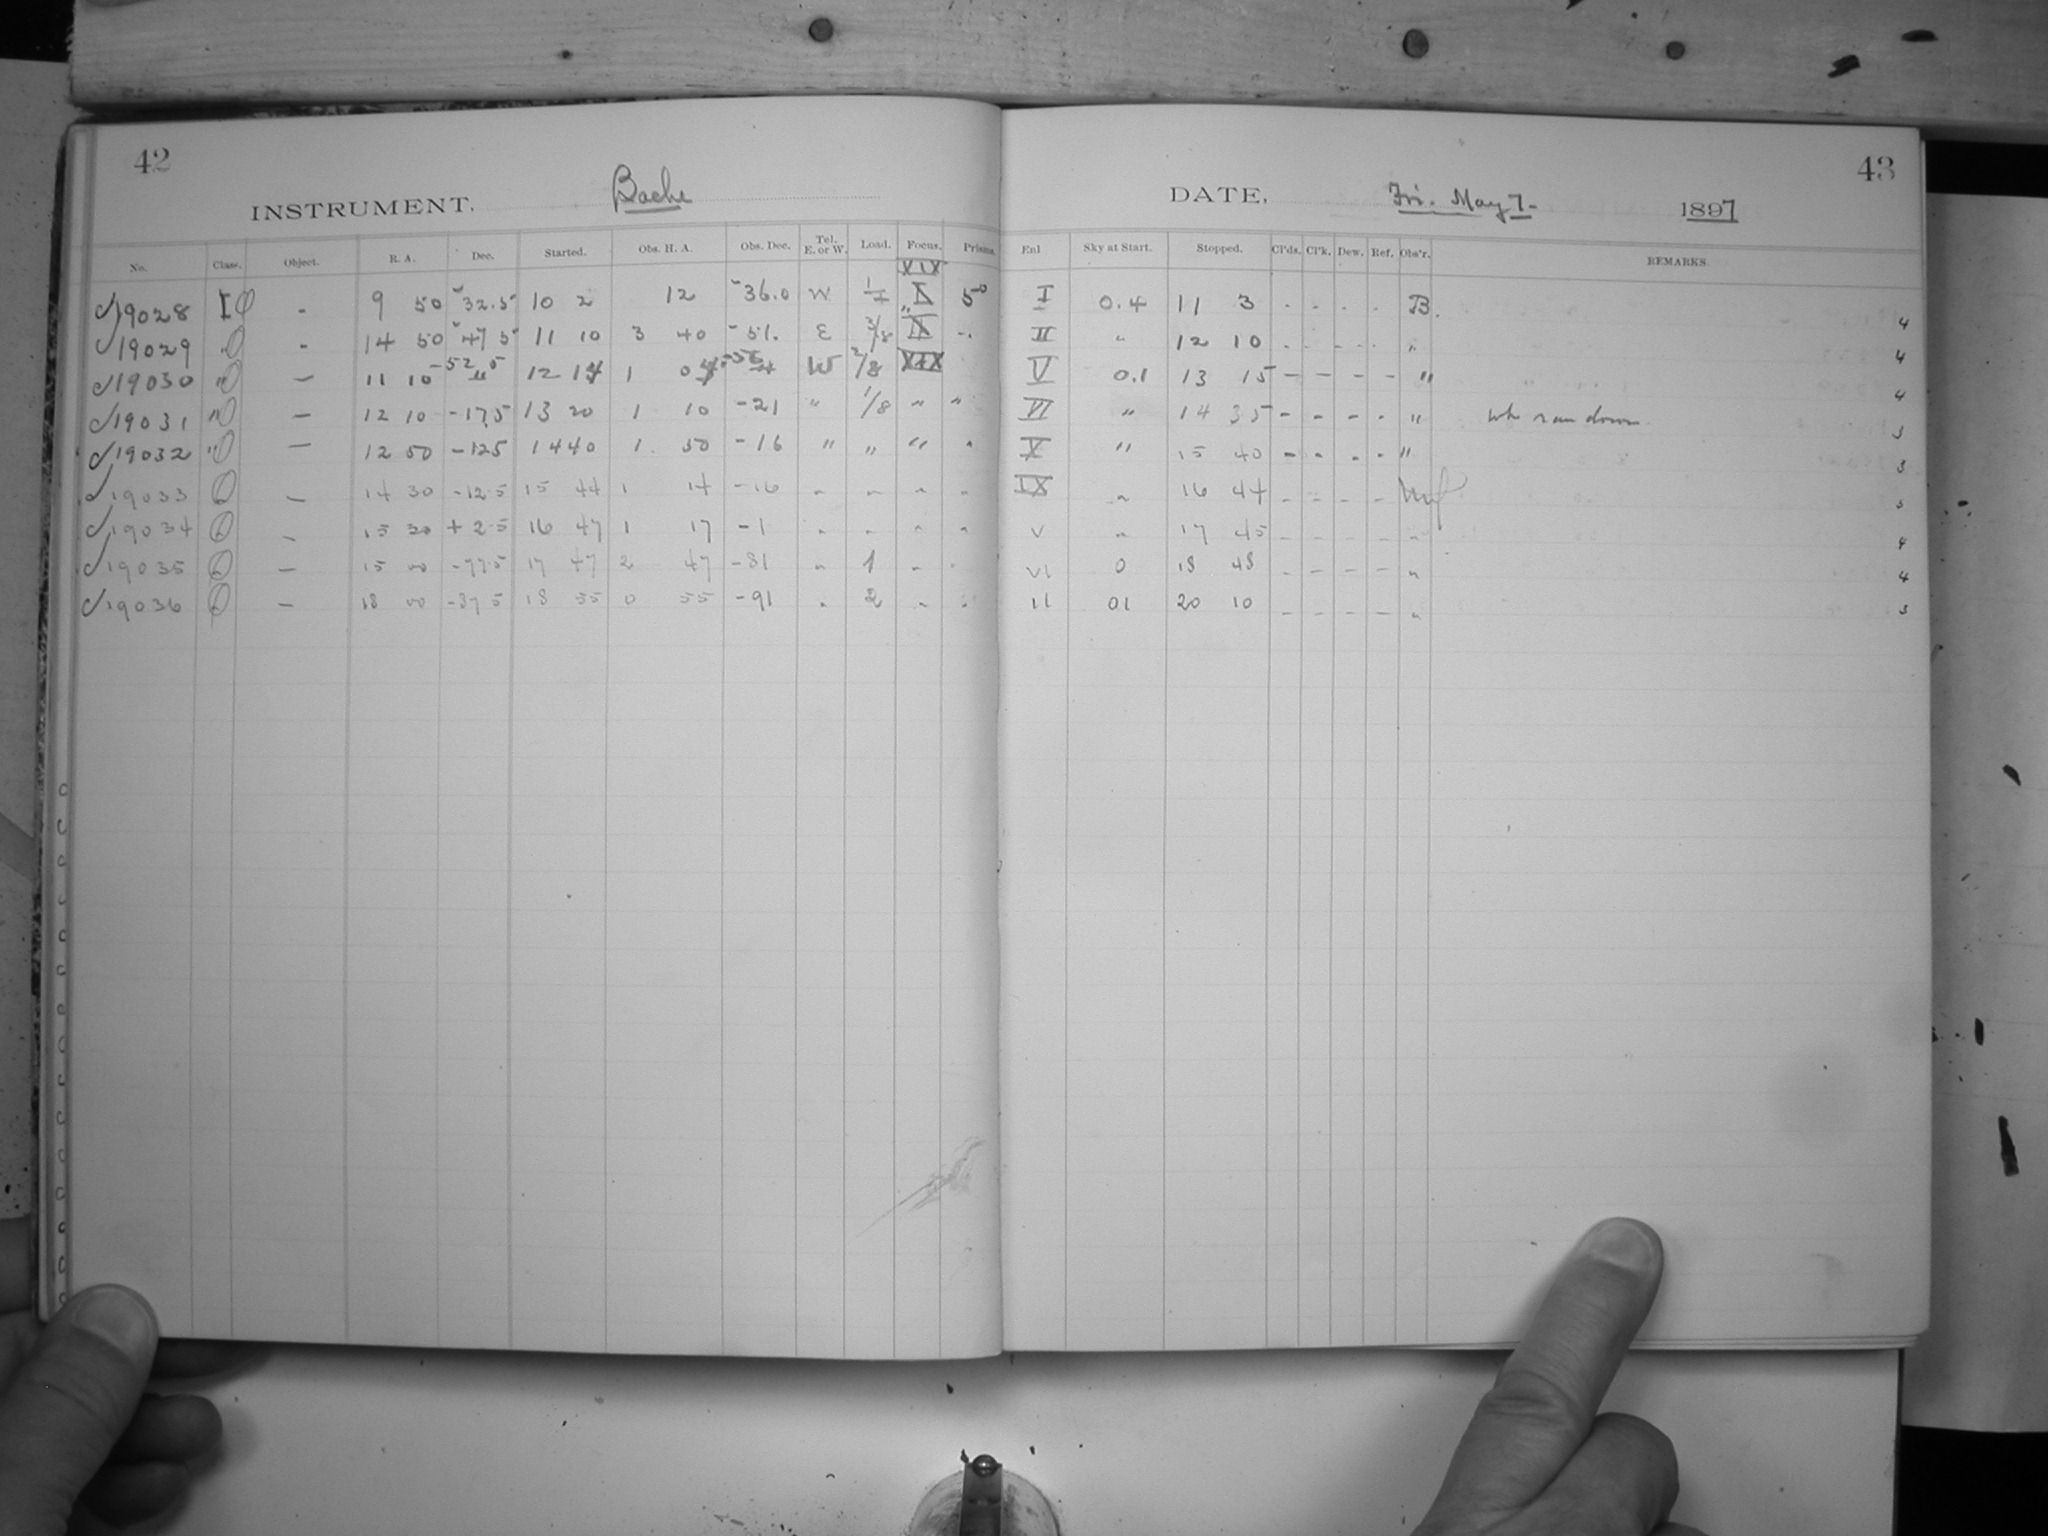 42
INSTRUMENT. Bache
No. Class. Object. R. A. Dec. Started. Obs. H. A. Obs. Dec. Tel. E. or W. Load. Focus. Prisms.
XIX
19028 I - 9 50 -32.5 10 2 12 -36.0 W 5°
19029 " - 14 50 -47 5 11 10 3 40 -51. E 3/8 "
19030 " - 11 10 -52 5 12 14 1 04 W 2/8
19031 " - 12 10 -17.5 13 20 1 10 -21 " 1/8 " "
19032 " - 12 50 -12.5 14 40 1 50 -16 " " " "
19033 " - 14 30 -12.5 15 44 1 14 -16 " " " "
19034 " - 15 30 +2.5 16 47 1 17 -1 " " " "
19035 " - 15 00 -77.5 17 47 2 47 -81 " 1 " "
19036 " - 18 00 -37 5 18 55 0 55 -91 " 2 " "
43
DATE, Fri. May 7. 1897
Enl Sky at Start. Stopped. Cl'ds. Cl'k. Dew. Ref. Obs'r. REMARKS.
I 0.4 11 3 - - - - B. 4
II " 12 10 - - - - " 4
V 0.1 13 15 - - - - " 4
VI " 14 35 - - - - " ran down 3
X " 15 40 - - - - " 3
IX " 16 44 - - - - 3
V " 17 45 - - - - " 4
VI 0 18 48 - - - - " 4
II 01 20 10 - - - - " 3